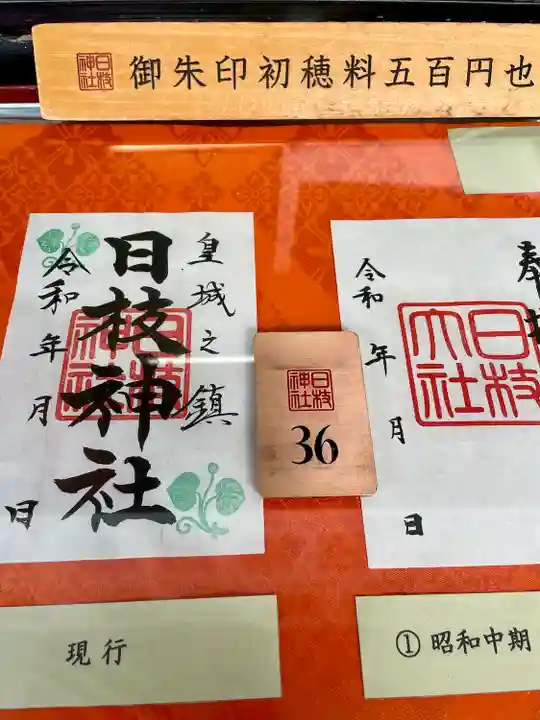 日枝神社
御朱印初穂料五百円也
皇城之鎮
日枝神社
日枝神社
令和 年 月 日
日枝神社
36
奉拝
日枝大社
令和 年 月 日
現行
① 昭和中期